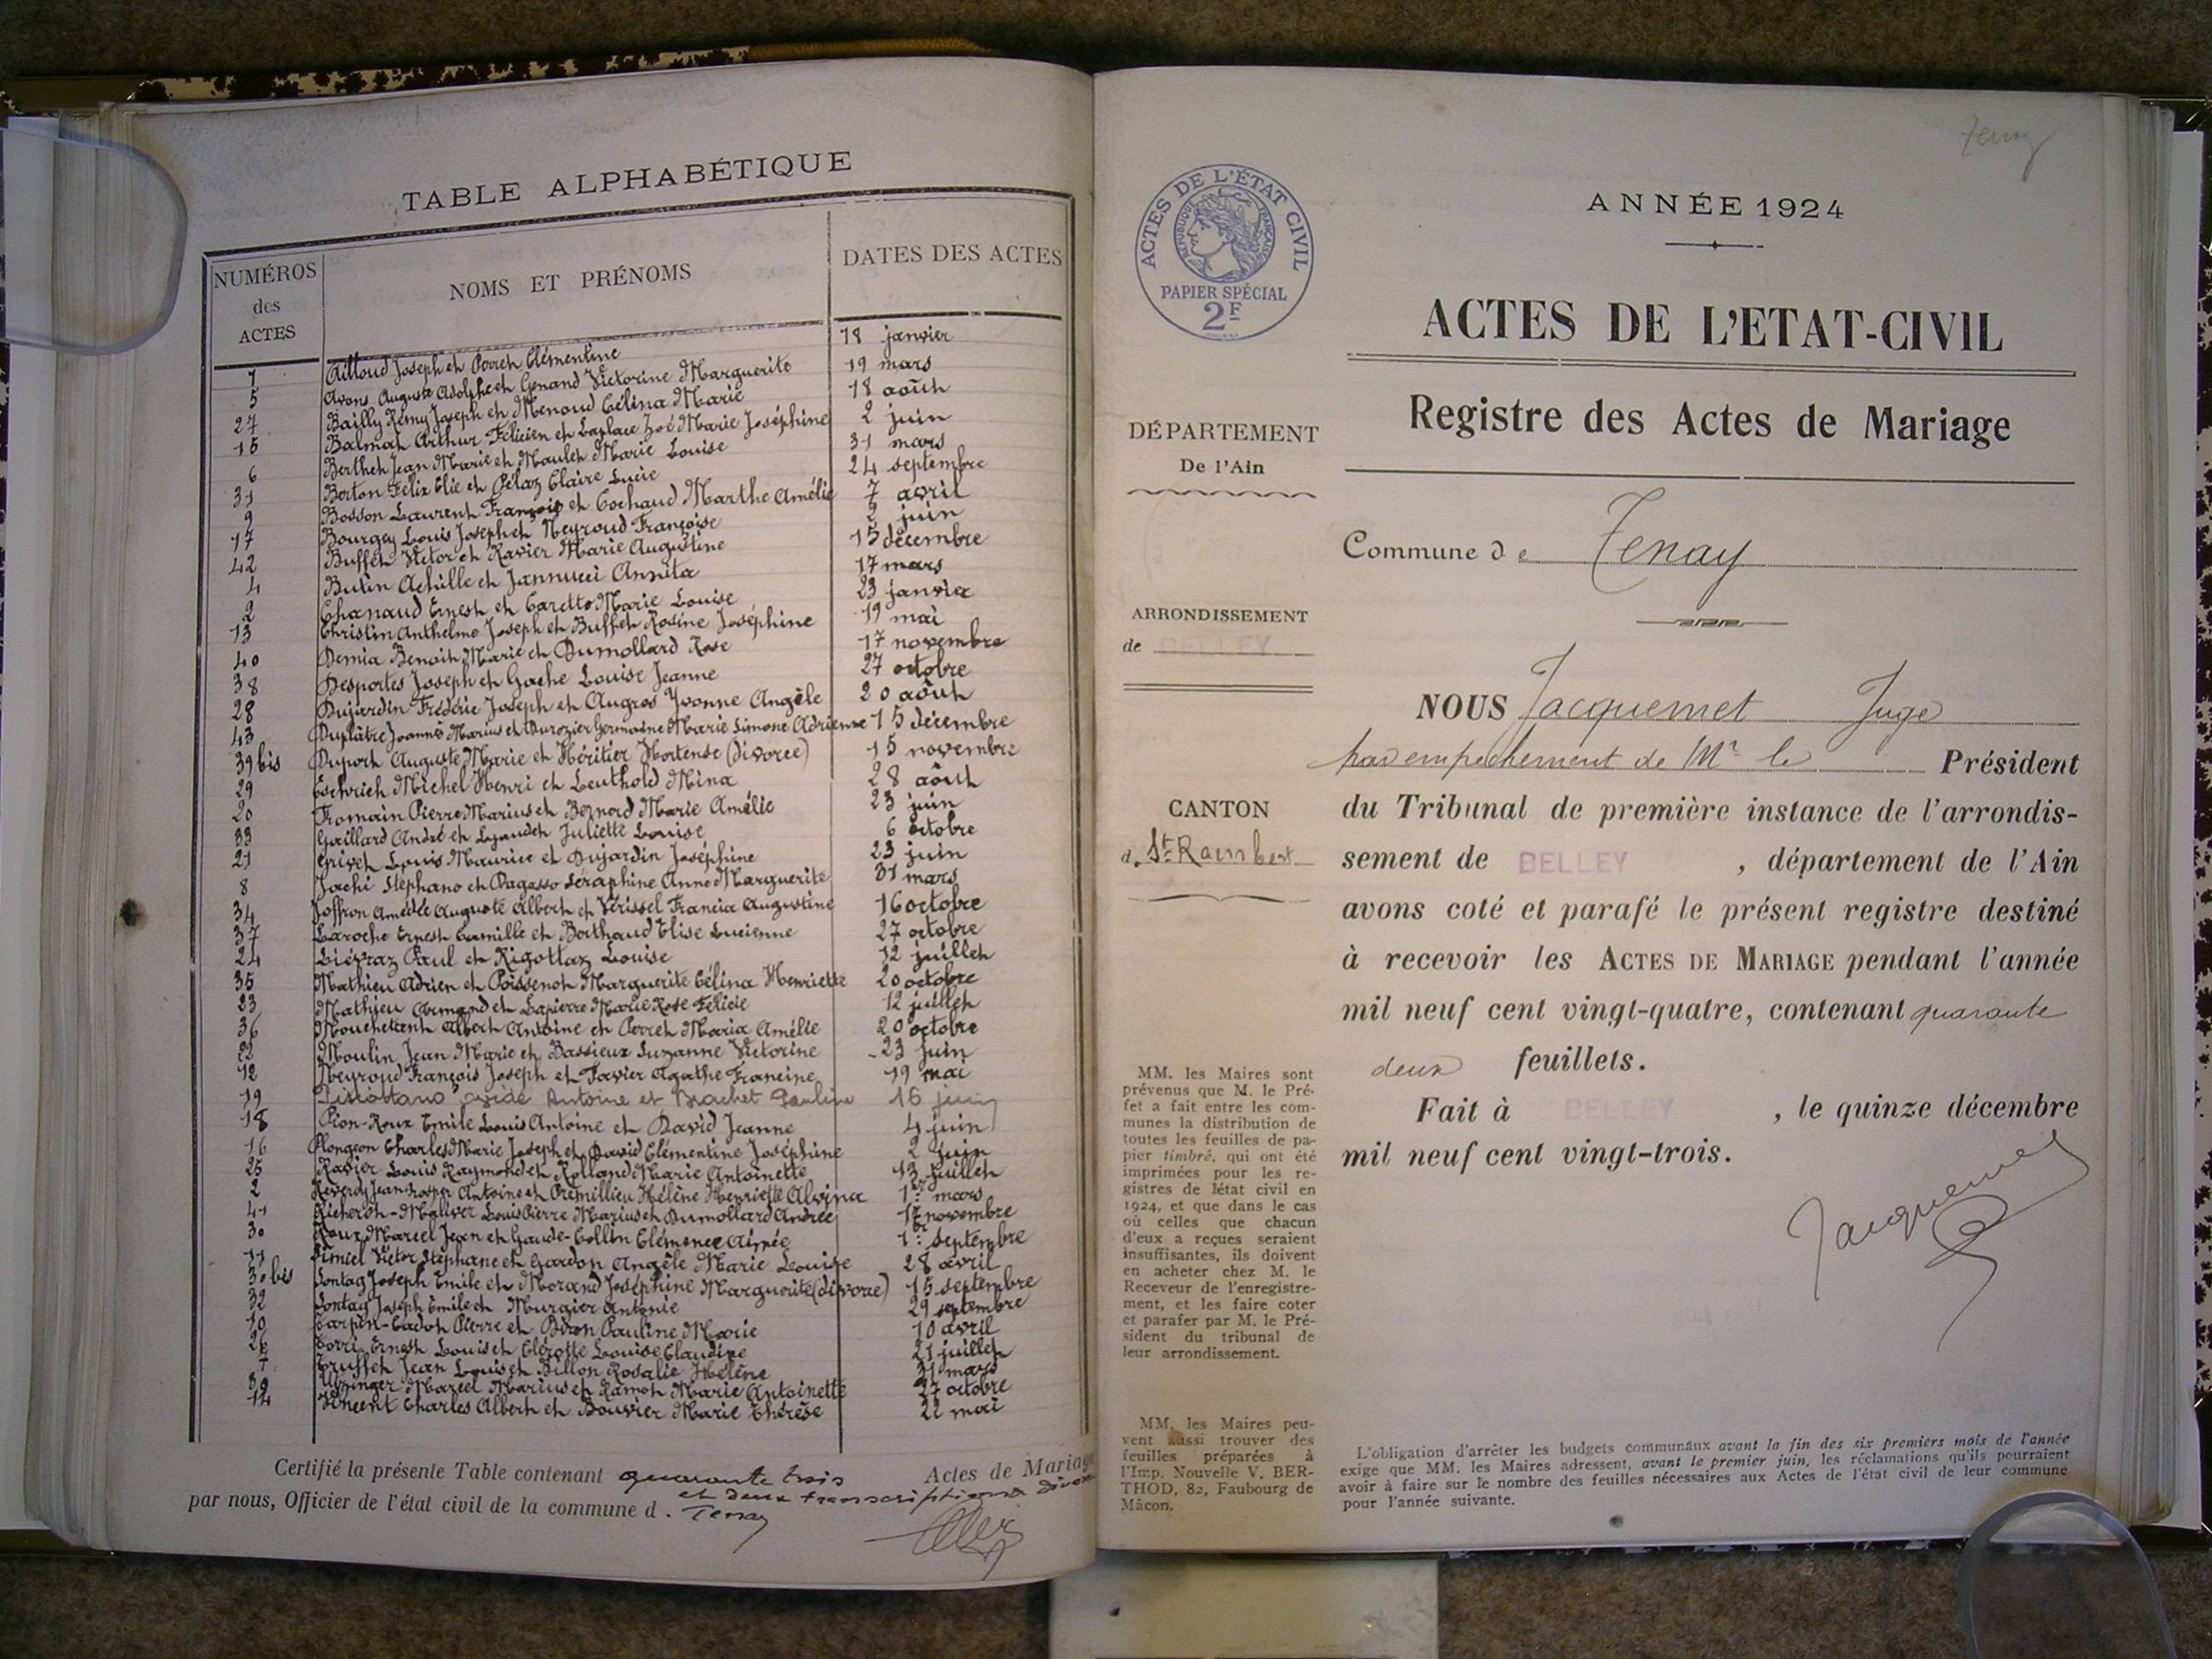 TABLE ALPHABÉTIQUE
NUMÉROS des ACTES
NOMS ET PRÉNOMS
DATES DES ACTES
1 Ailloud Joseph et Perret Clémentine 18 janvier
5 Avons Auguste Adolphe et Genand Victorine Marguerite 19 mars
27 Bailly Rémy Joseph et Menoud Célina Marie 18 août
15 Balmat Arthur Félicien et Laplace Zoé Marie Joséphine 2 juin
6 Berthet Jean Marie et Maulet Marie Louise 31 mars
31 Berton Félix Elie et Pélaz Claire Lucie 24 septembre
9 Bosson Laurent François et Cochaud Marthe Amélie 7 avril
17 Bourgey Louis Joseph et Neyroud Françoise 2 juin
42 Buffet Victor et Ravier Marie Augustine 15 décembre
4 Butin Achille et Jannucci Annita 17 mars
2 Chanaud Ernest et Caretto Marie Louise 23 janvier
13 Christin Anthelme Joseph et Buffet Rosine Joséphine 19 mai
40 Demia Benoit Marie et Dumollard Rose 17 novembre
38 Desportes Joseph et Gache Louise Jeanne 27 octobre
28 Dujardin Frédéric Joseph et Augros Yvonne Angèle 20 août
43 Duplâtre Joannès Marius et Durozier Germaine Marie Simone Adrienne 15 décembre
39 bis Duport Auguste Marie et Héritier Hortense (divorce) 15 novembre
29 Michel Henri et Leuthold Mina 28 août
20 Fromain Pierre Marius et Bernord Marie Amélie 23 juin
33 Gaillard André et Juliette Louise 6 octobre
21 Grivet Louis Maurice et Dujardin Joséphine 23 juin
8 Jachi Stéphano et Dagasso Séraphine Anne Marguerite 31 mars
34 Joffron Amédée Auguste Albert et Vérissel Francia Augustine 16 octobre
37 Laroche Ernest Camille et Berthaud Elise Lucienne 27 octobre
24 Liévraz Paul et Rigottaz Louise 12 juillet
35 Mathieu Adrien et Poissenot Marguerite Célina Henriette 20 octobre
23 Mathieu Armand et Lapierre Marie Rose Félicie 12 juillet
36 Albert Antoine et Perret Maria Amélie 20 octobre
22 Moulin Jean Marie et Bassieux Suzanne Victorine 23 juin
12 Neyroud François Joseph et Favier Agathe Francine 19 mai
19 Antoine et Brachet Pauline 16 juin
18 Pion-Roux Emile Louis Antoine et David Jeanne 4 juin
16 Plongeon Charles Marie Joseph et David Clémentine Joséphine 2 juin
25 Ravier Louis Raymond et Rolland Marie Antoinette 13 juillet
2 Reverdy Jean Prosper Antoine et Prémillieu Hélène Henriette Alvina 1er mars
41 Louis Pierre Marius et Dumollard Andrée 17 novembre
30 Roux Marcel Jean et Gaude-Collin Clémence Aimée 1er septembre
11 Victor Stéphane et Gardon Angèle Marie Louise 28 avril
30 bis Sontag Joseph Emile et Morand Joséphine Marguerite (divorce) 15 septembre
32 Sontag Joseph Emile et Murgier Antonie 29 septembre
10 Carpin-Cadot Pierre et Biron Pauline Marie 10 avril
26 Torri Ernest Louis et Clérotte Louise Claudine 21 juillet
7 Truffet Jean Louis et Billon Rosalie Hélène 31 mars
39 Marcel Marius et Ramot Marie Antoinette 27 octobre
14 Vincent Charles Albert et Bouvier Marie Thérèse 22 mai
Certifié la présente Table contenant quarante trois Actes de Mariage
et deux transcriptions divorce
par nous, Officier de l'état civil de la commune d. Tenay
Tenay
ACTES DE L'ÉTAT CIVIL
RÉPUBLIQUE FRANÇAISE
PAPIER SPÉCIAL
2F
ANNÉE 1924
ACTES DE L'ETAT-CIVIL
Registre des Actes de Mariage
DÉPARTEMENT
De l'Ain
ARRONDISSEMENT
de BELLEY
CANTON
d. St-Rambert
MM. les Maires sont
prévenus que M. le Pré-
fet a fait entre les com-
munes la distribution de
toutes les feuilles de pa-
pier timbré, qui ont été
imprimées pour les re-
gistres de létat civil en
1924, et que dans le cas
où celles que chacun
d'eux a reçues seraient
insuffisantes, ils doivent
en acheter chez M. le
Receveur de l'enregistre-
ment, et les faire coter
et parafer par M. le Pré-
sident du tribunal de
leur arrondissement.
MM. les Maires peu-
vent aussi trouver des
feuilles préparées à
l'Imp. Nouvelle V. BER-
THOD, 82, Faubourg de
Mâcon.
Commune de Tenay
NOUS Jacquemet Juge
par empêchement de Mr le Président
du Tribunal de première instance de l'arrondis-
sement de BELLEY, département de l'Ain
avons coté et parafé le présent registre destiné
à recevoir les ACTES DE MARIAGE pendant l'année
mil neuf cent vingt-quatre, contenant quarante
deux feuillets.
Fait à BELLEY, le quinze décembre
mil neuf cent vingt-trois.
Jacquemet
L'obligation d'arrêter les budgets communaux avant la fin des six premiers mois de l'année
exige que MM. les Maires adressent, avant le premier juin, les réclamations qu'ils pourraient
avoir à faire sur le nombre des feuilles nécessaires aux Actes de l'état civil de leur commune
pour l'année suivante.